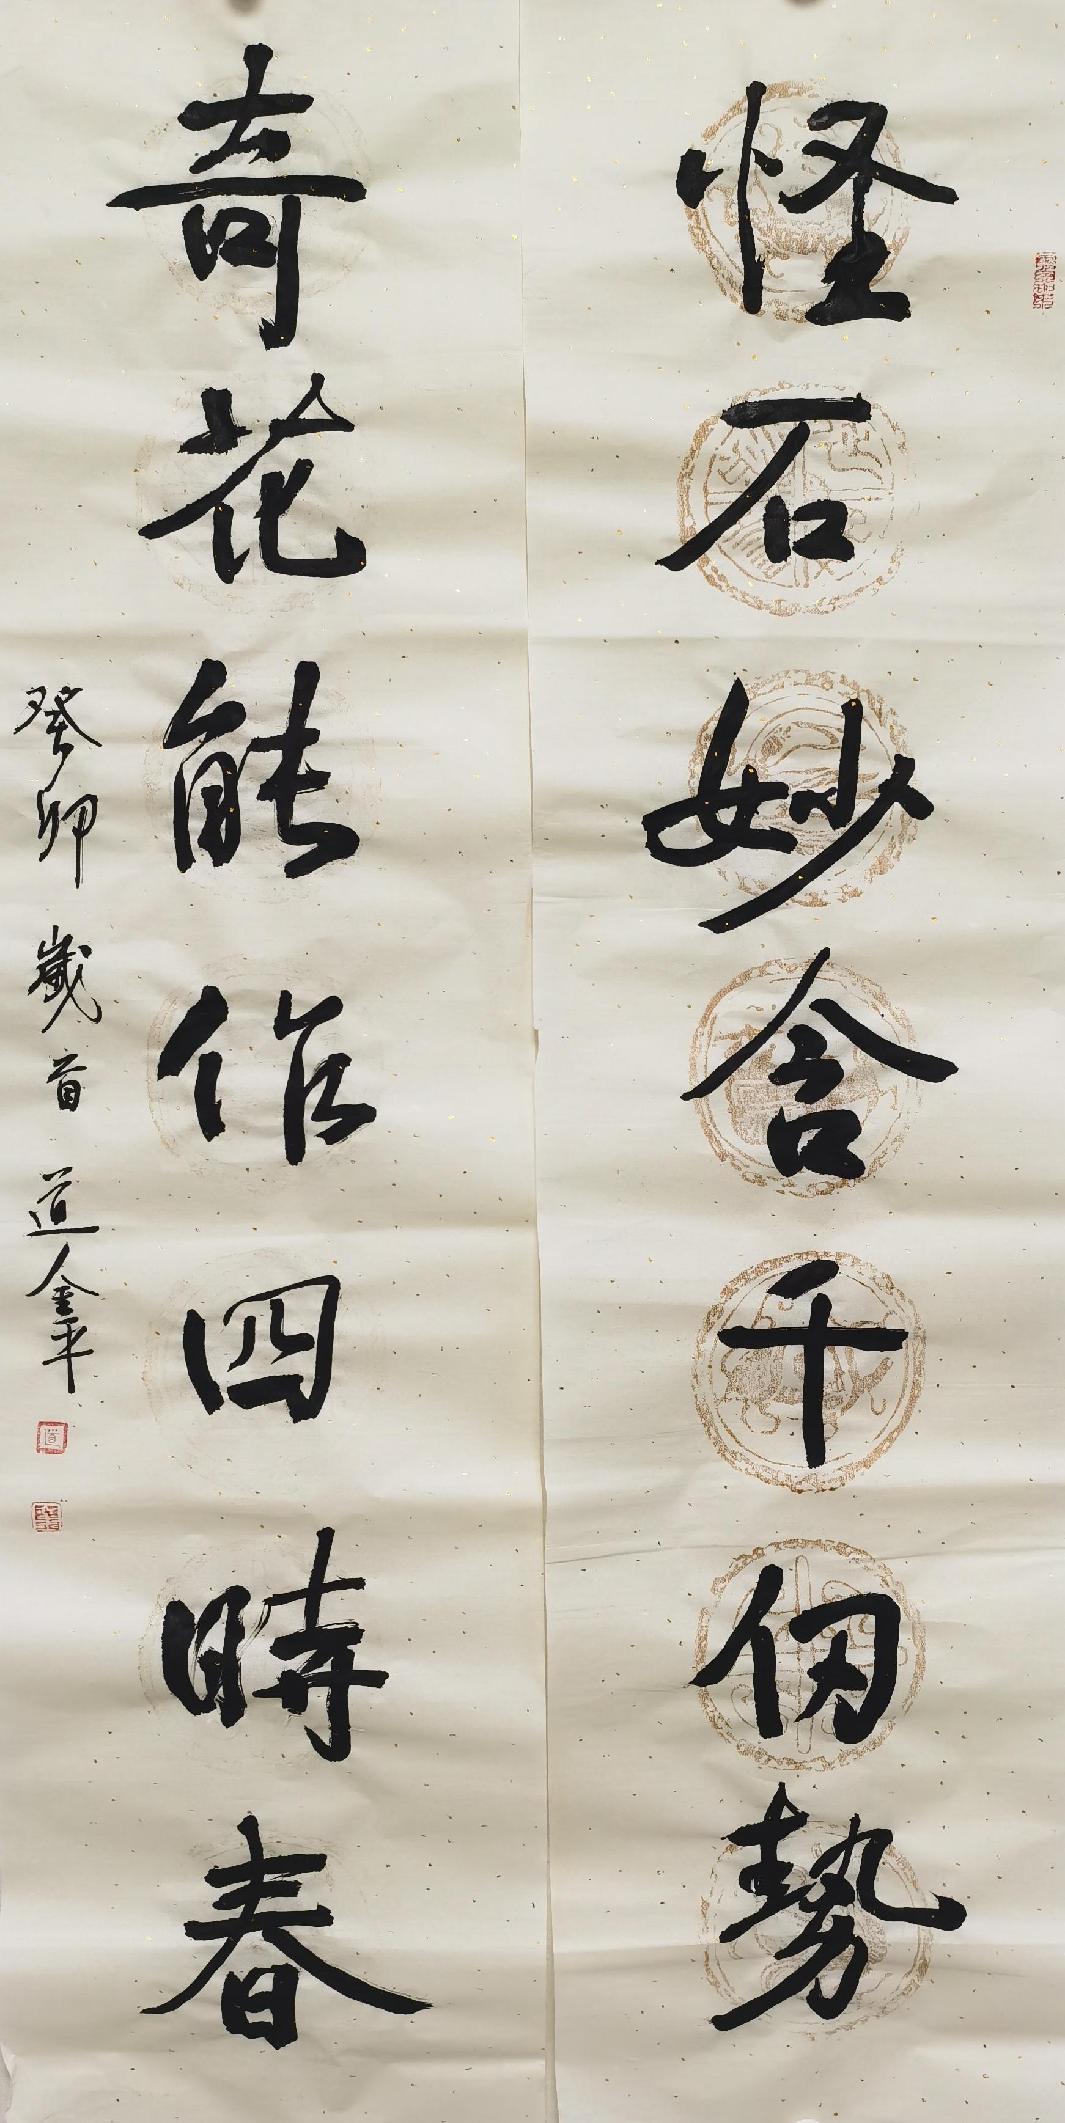 怪石妙含千仞勢
奇花能作四時春
癸卯歲首道金平